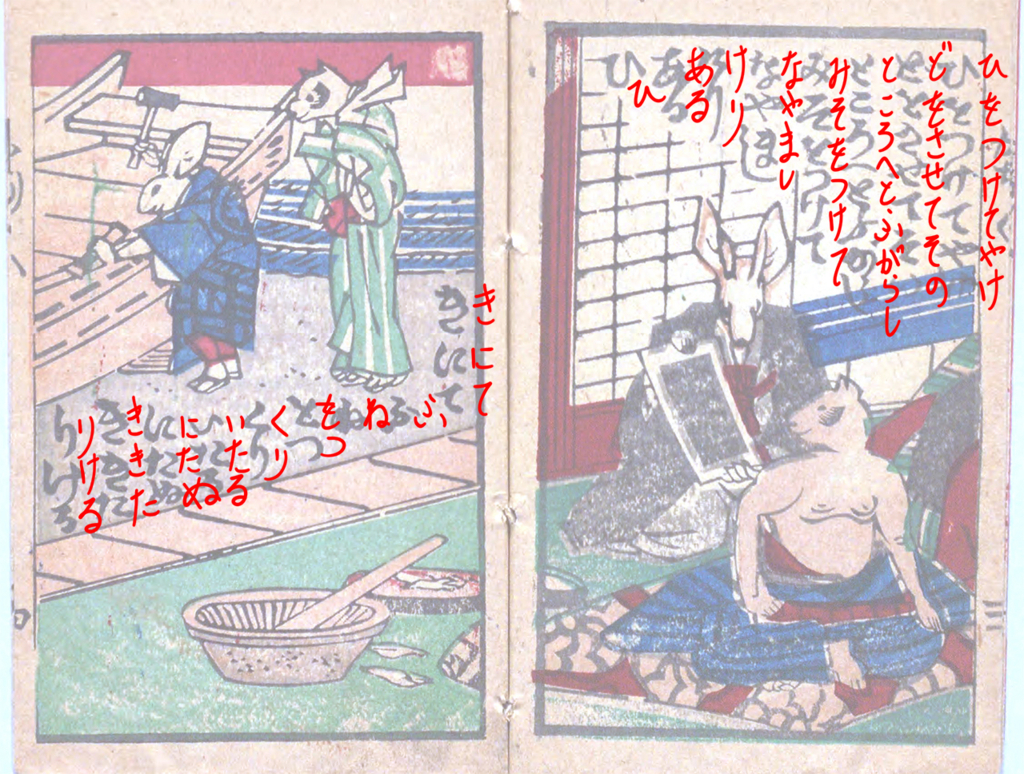 ひをつけてやけ
どをきせてその
ところへとふがらし
みそをつけて
なやまし
けり
ある
ひ
きにて
ぶ
ね
をつ
くり
いたる
にたぬ
ききた
りける